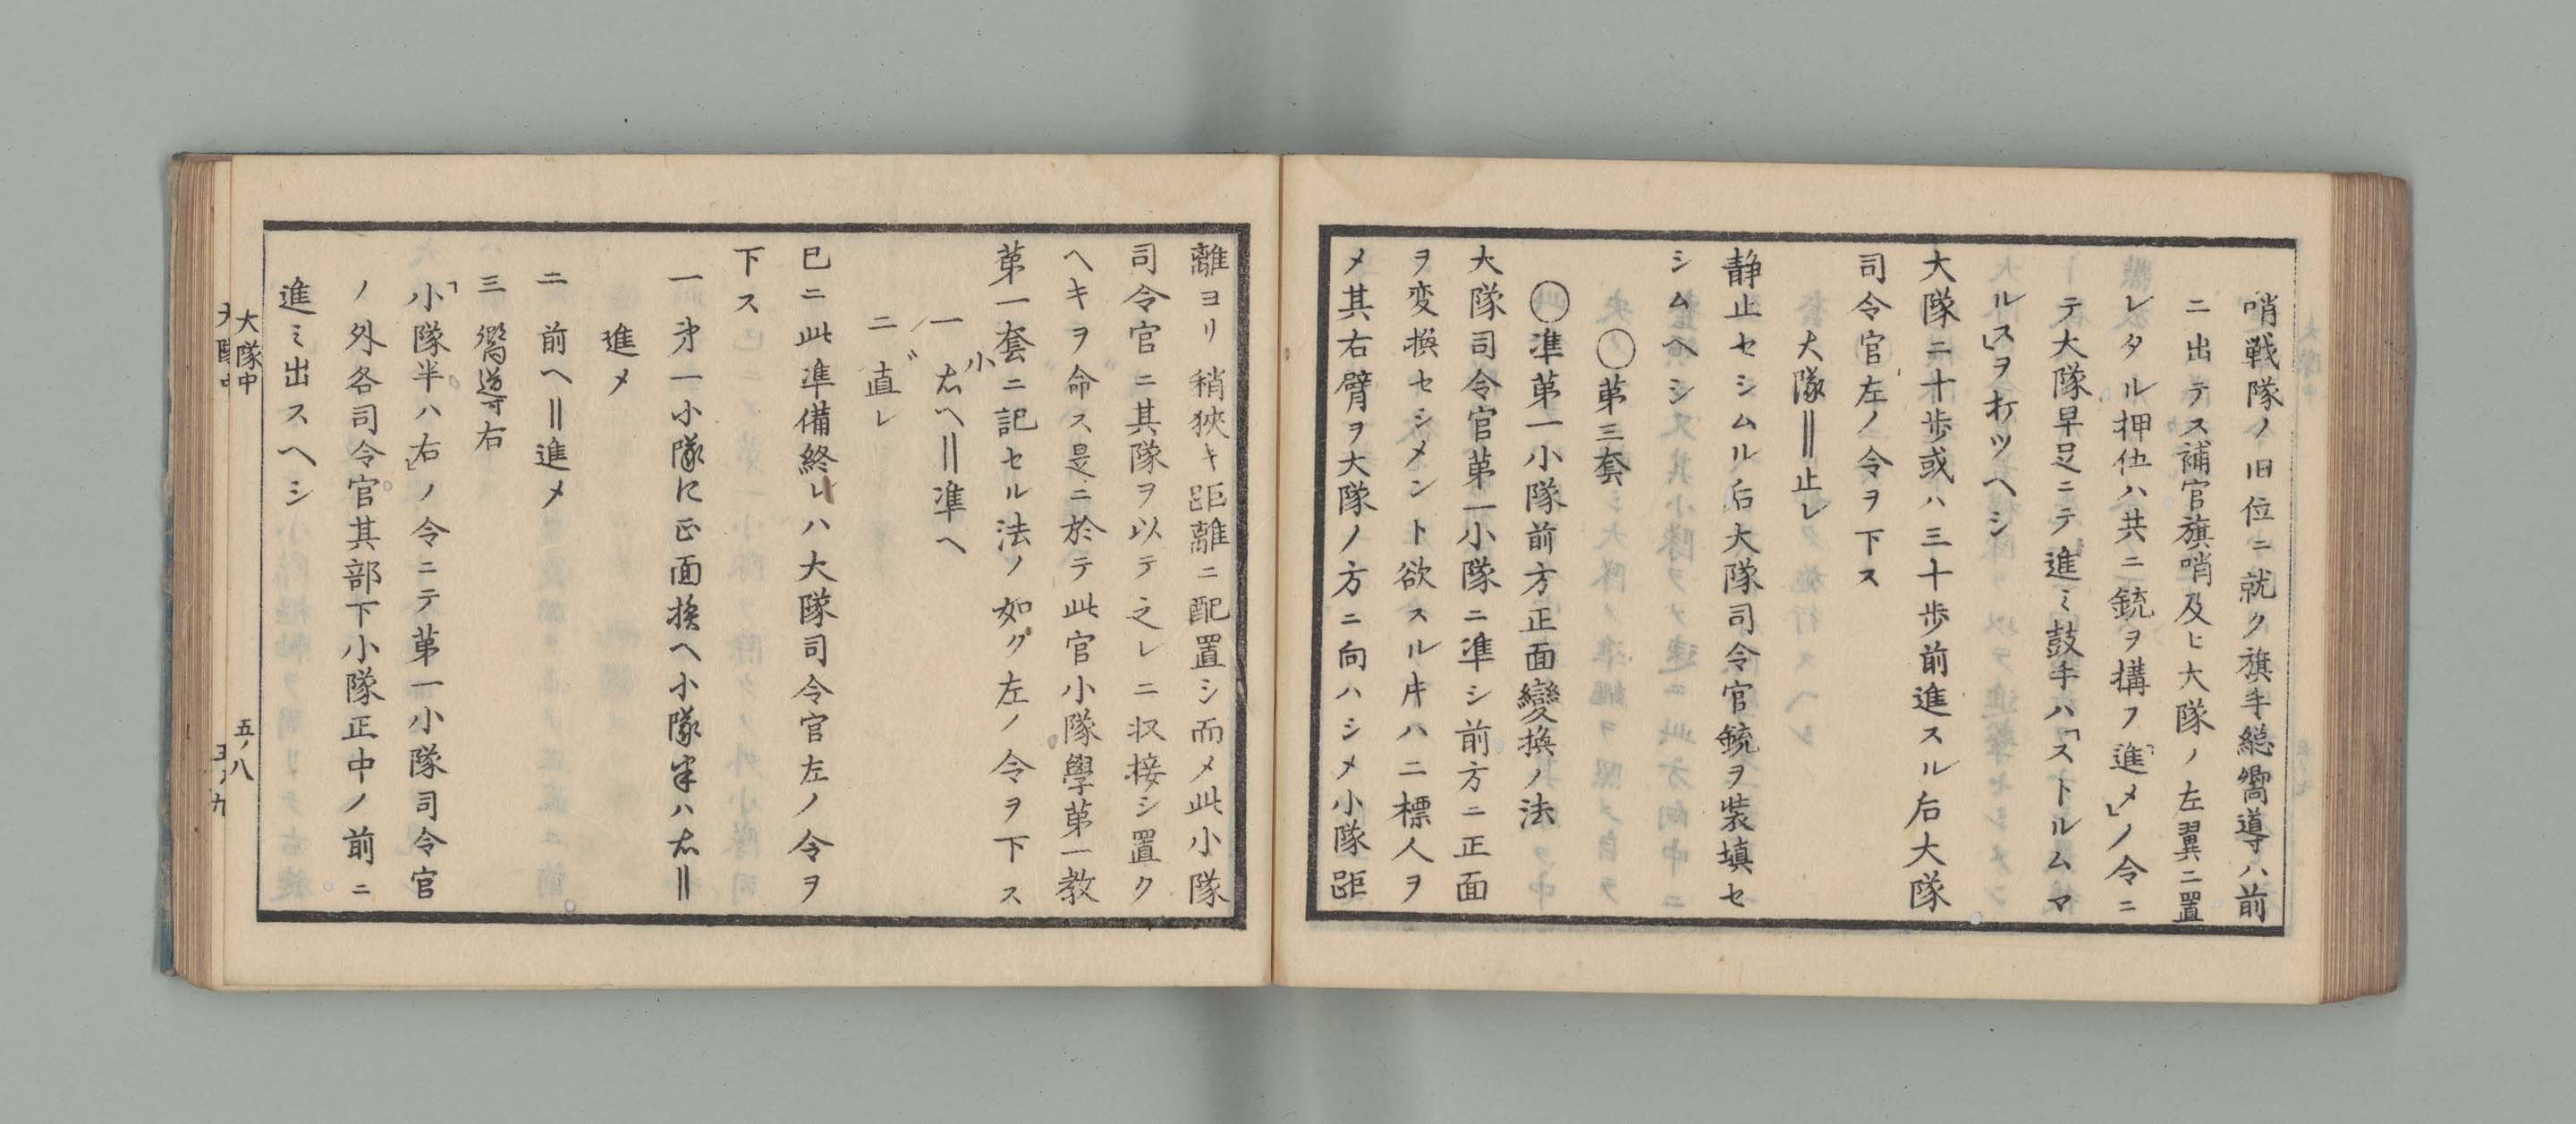 哨戦隊ノ旧位ニ就ク旗手総嚮導ハ前
ニ出テス補官旗哨及ヒ大隊ノ左翼ニ置
レタル押伍ハ共ニ銃ヲ構フ「進メ」ノ令ニ
テ大隊早足ニテ進ミ鼓手ハ「ストルムマ
ルス」ヲ打ツヘシ
大隊二十歩或ハ三十歩前進スル后大隊
司令官左ノ令ヲ下ス
大隊‖止レ
静止セシムル后大隊司令官銃ヲ装填セ
シムヘシ
〇第三套
〇準第一小隊前方正面變換ノ法
大隊司令官第一小隊ニ準シ前方ニ正面
ヲ変換セシメント欲スル片ハ二標人ヲ
メ其右臂ヲ大隊ノ方ニ向ハシメ小隊距
離ヨリ稍狹キ距離ニ配置シ而メ此小隊
司令官ニ其隊ヲ以テ之レニ収接シ置ク
ヘキヲ命ス是ニ於テ此官小隊學第一教
第一套ニ記セル法ノ如ク左ノ令ヲ下ス
一 小右ヘ‖準ヘ
二 直レ
已ニ此準備終レハ大隊司令官左ノ令ヲ
下ス
一 第一小隊に正面換ヘ小隊半ハ右‖
進メ
二 前ヘ‖進メ
三 嚮導右
「小隊半ハ右」ノ令ニテ第一小隊司令官
ノ外各司令官其部下小隊正中ノ前ニ
進ミ出スヘシ
大隊中 五ノ八